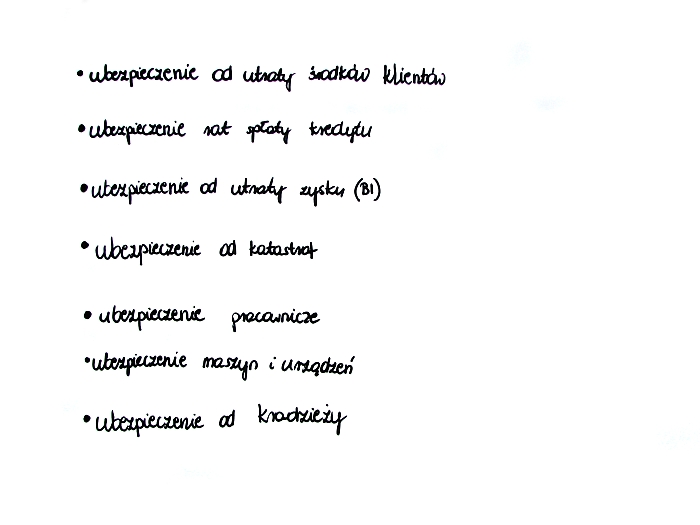 • ubezpieczenie od utraty środków klientów
• ubezpieczenie rat spłaty kredytu
• ubezpieczenie od utraty zysku (BI)
• ubezpieczenie od katastrof
• ubezpieczenie pracownicze
• ubezpieczenie maszyn i urządzeń
• ubezpieczenie od kradzieży